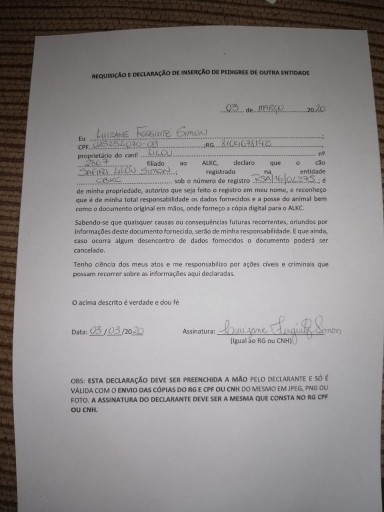 REQUISIÇÃO E DECLARAÇÃO DE INSERÇÃO DE PEDIGREE DE OUTRA ENTIDADE
03 de MARÇO 2020
Eu LUISANE SIMON ;
CPF ;RG
proprietário do canil LILOU nº
2567 filiado ao ALKC, declaro que o cão
SAFIRA LILOU SIMON ; registrado na entidade
CBKC sob o número de registro é
de minha propriedade, autorizo que seja feito o registro em meu nome, e reconheço
que é de minha total responsabilidade os dados fornecidos e a posse do animal bem
como o documento original em mãos, onde forneço a cópia digital para o ALKC.
Sabendo-se que quaisquer causas ou consequências futuras recorrentes, oriundos por
informações deste documento fornecido, serão de minha responsabilidade. E que ainda,
caso ocorra algum desencontro de dados fornecidos o documento poderá ser
cancelado.
Tenho ciência dos meus atos e me responsabilizo por ações cíveis e criminais que
possam recorrer sobre as informações aqui declaradas.
O acima descrito é verdade e dou fé
Data: 03/03/2020 Assinatura: Simon
(Igual ao RG ou CNH)
OBS: ESTA DECLARAÇÃO DEVE SER PREENCHIDA A MÃO PELO DECLARANTE E SÓ É
VÁLIDA COM O ENVIO DAS CÓPIAS DO RG E CPF OU CNH DO MESMO EM JPEG, PNG OU
FOTO. A ASSINATURA DO DECLARANTE DEVE SER A MESMA QUE CONSTA NO RG CPF
OU CNH.